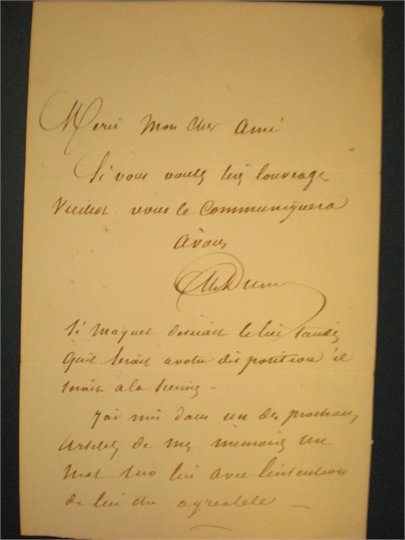 Merci Mon cher Ami
Si vous voulez lire l'ouvrage
vous le communiquera
A vous
Alex Dumas
Si Maquet désirait le lire tandis
qu'il serait a votre disposition il
serait a la sienne -
J'ai mis dans un des prochains
articles de mes mémoires un
mot sur lui avec l'intention
de lui être agréable -